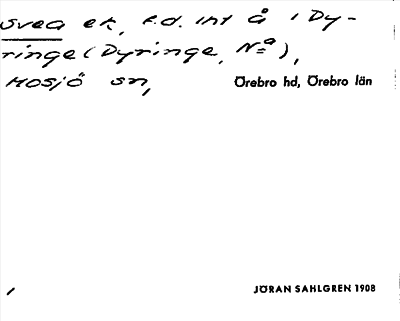 Svea ek, f.d. int å i Dy-
ringe (Dyringe, Nª),
Mosjö sn,
Örebro hd, Örebro län
JÖRAN SAHLGREN 1908